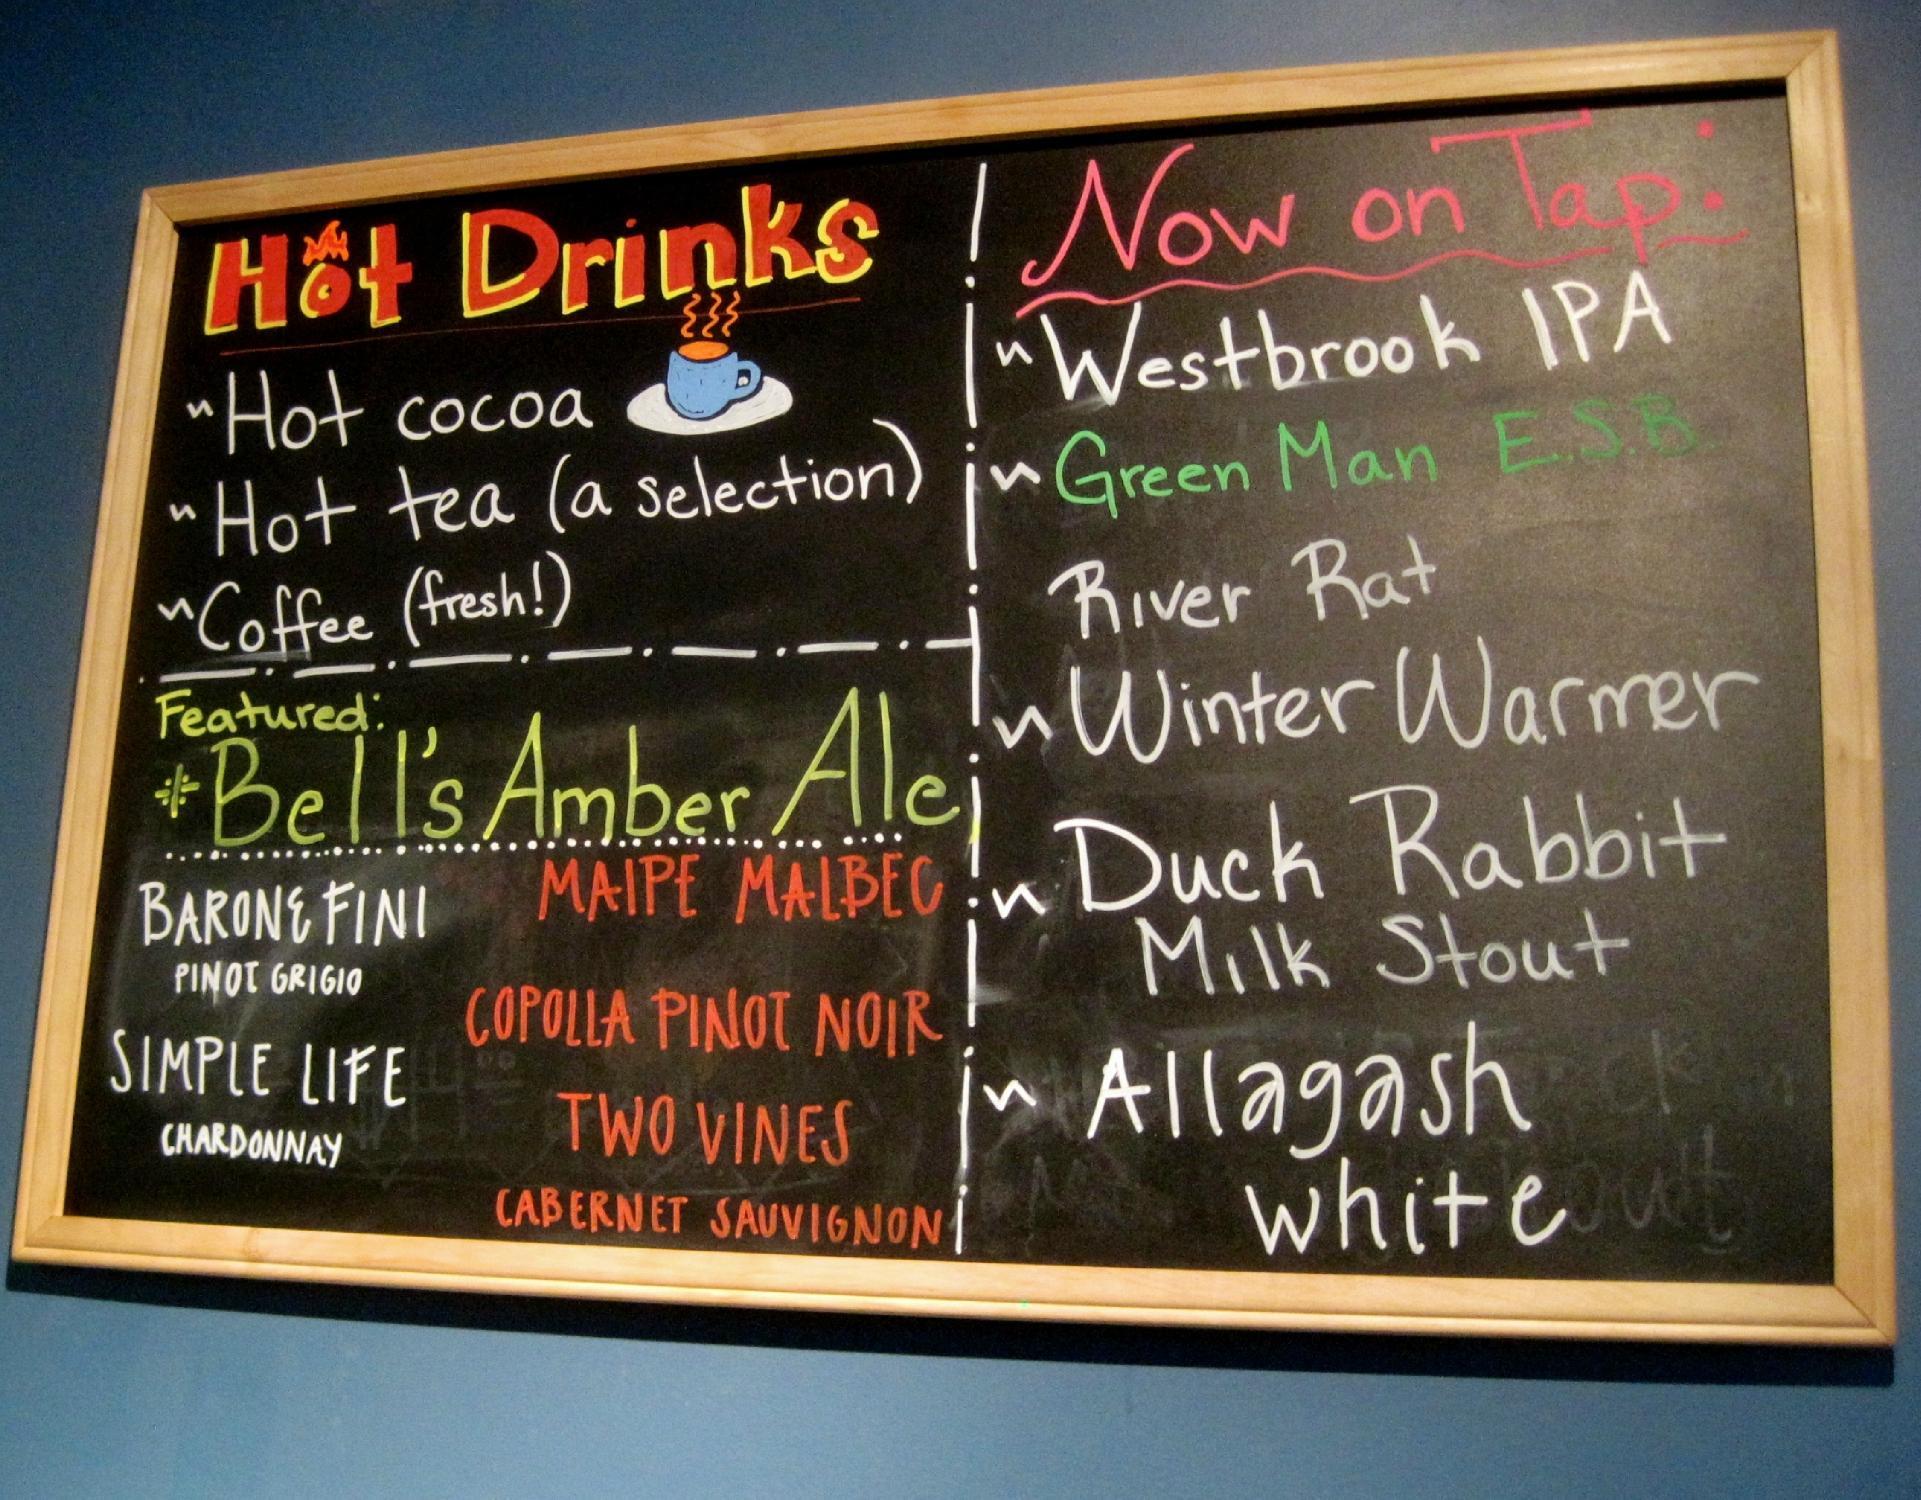 Hot Drinks
~Hot cocoa
~Hot tea (a selection)
~Coffee (fresh!)
Featured:
*Bell's Amber Ale
BARONE FINI
PINOT GRIGIO
SIMPLE LIFE
CHARDONNAY
MAIPE MALBEC
COPOLLA PINOT NOIR
TWO VINES
CABERNET SAUVIGNON
Now on Tap:
~Westbrook IPA
~Green Man E.S.B.
River Rat
~Winter Warmer
~Duck Rabbit
Milk Stout
~Allagash
white